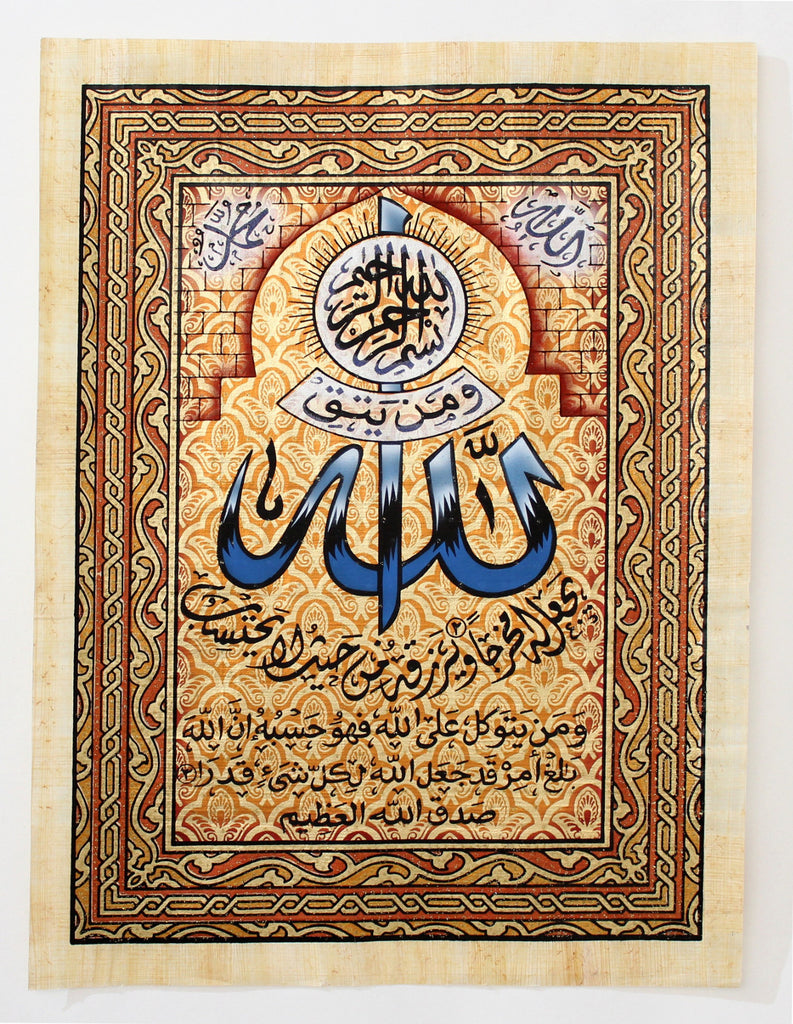 الله
محمد
بسم الله الرحمن الرحيم
وَمَن يَتَّقِ
اللّٰه
يجعل له مخرجًا ٢ ويرزقه من حيث لا يحتسب
وَمَن يَتَوَكَّل عَلَى اللَّه فَهُوَ حَسْبُهُ إِنَّ اللَّهَ
بَلغ أَمرِهْ قَد جَعَل اللَّه لِكُلّ شَيْءٍ قَدرًا ٣
صَدَقَ اللَّه العَظِيم